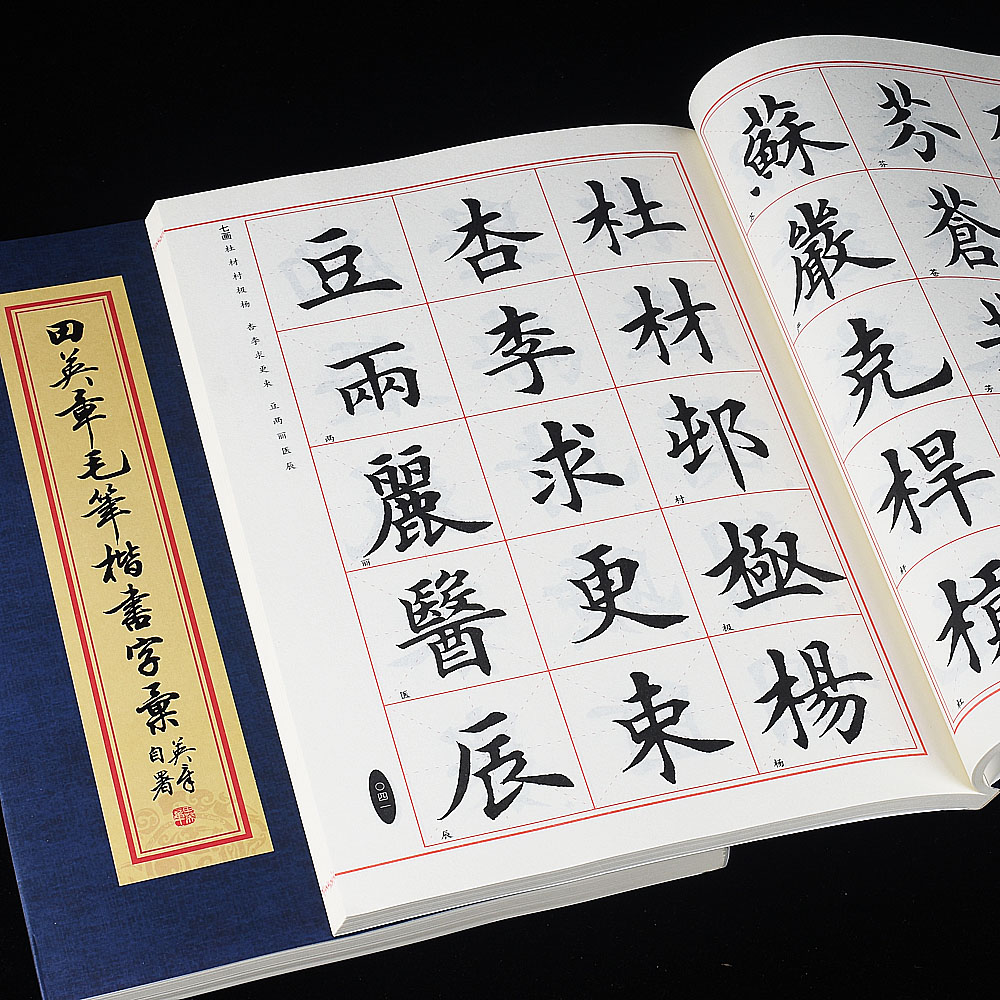 田英章毛筆楷書字彙
英章
自署
七画 杜材村极杨 杏李求更束 豆两丽医辰
杜材邨極楊
村
极
杨
杏李求更束
豆兩麗醫辰
两
丽
医
辰
〇四一
芬蒼
芬
苍
蘇嚴克桿槓
杠